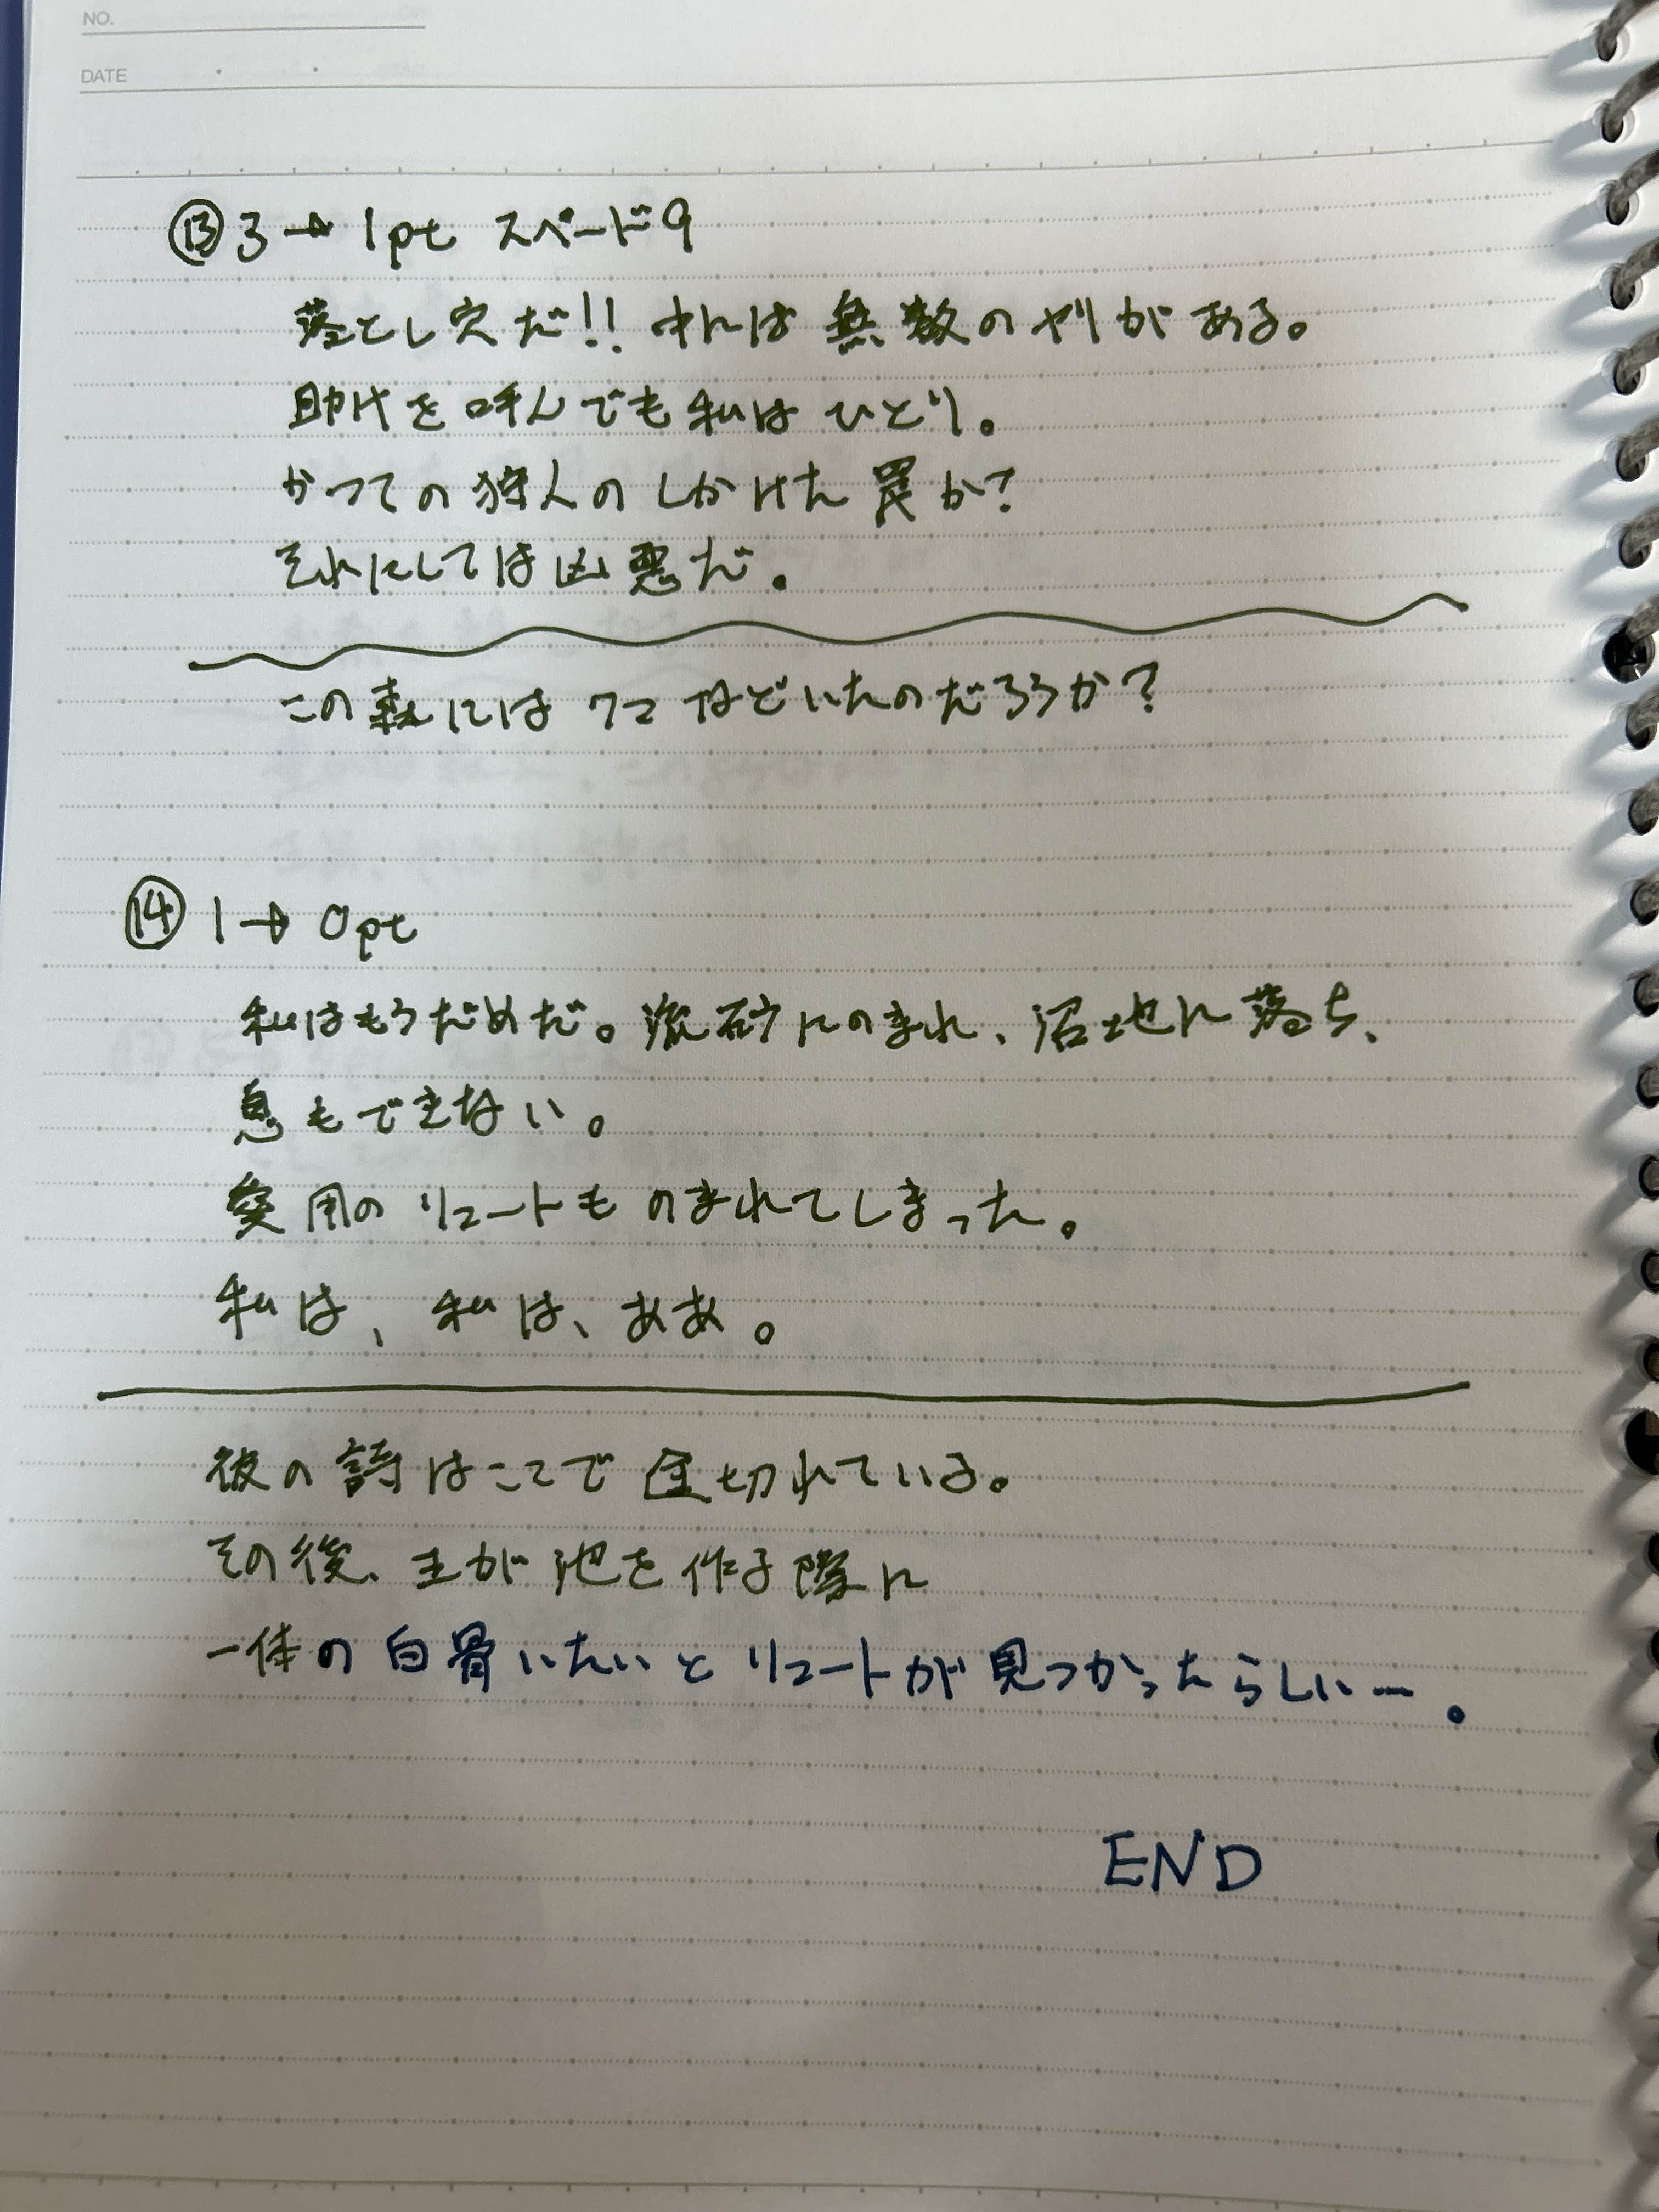 NO.
DATE
⑬ 3 → 1pt スペード9
落とし穴だ!! 中には無数のヤリがある。
助けを呼んでも私はひとり。
かつての狩人のしかけた罠か?
それにしては凶悪だ。
この森にはワニなどいたのだろうか?
⑭ 1 → 0pt
私はもうだめだ。流砂にのまれ、沼地に落ち、
息もできない。
愛用のリュートものまれてしまった。
私は、私は、ああ。
彼の詩はここで途切れている。
その後、王が池を作る際に
一体の白骨いたいとリュートが見つかったらしい―。
END